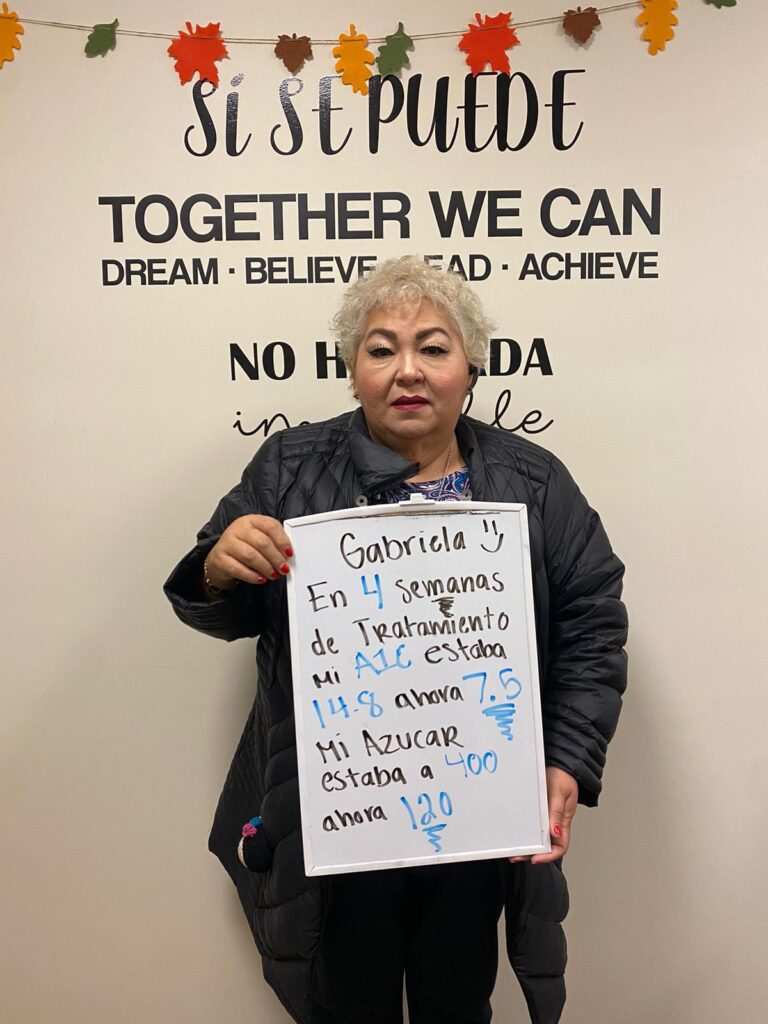 SÍ SE PUEDE
TOGETHER WE CAN
DREAM · BELIEVE · · ACHIEVE
NO
Gabriela
En 4 semanas
de Tratamiento
Mi A1C estaba
14.8 ahora 7.5
Mi AZUCAR
estaba a 400
ahora 120